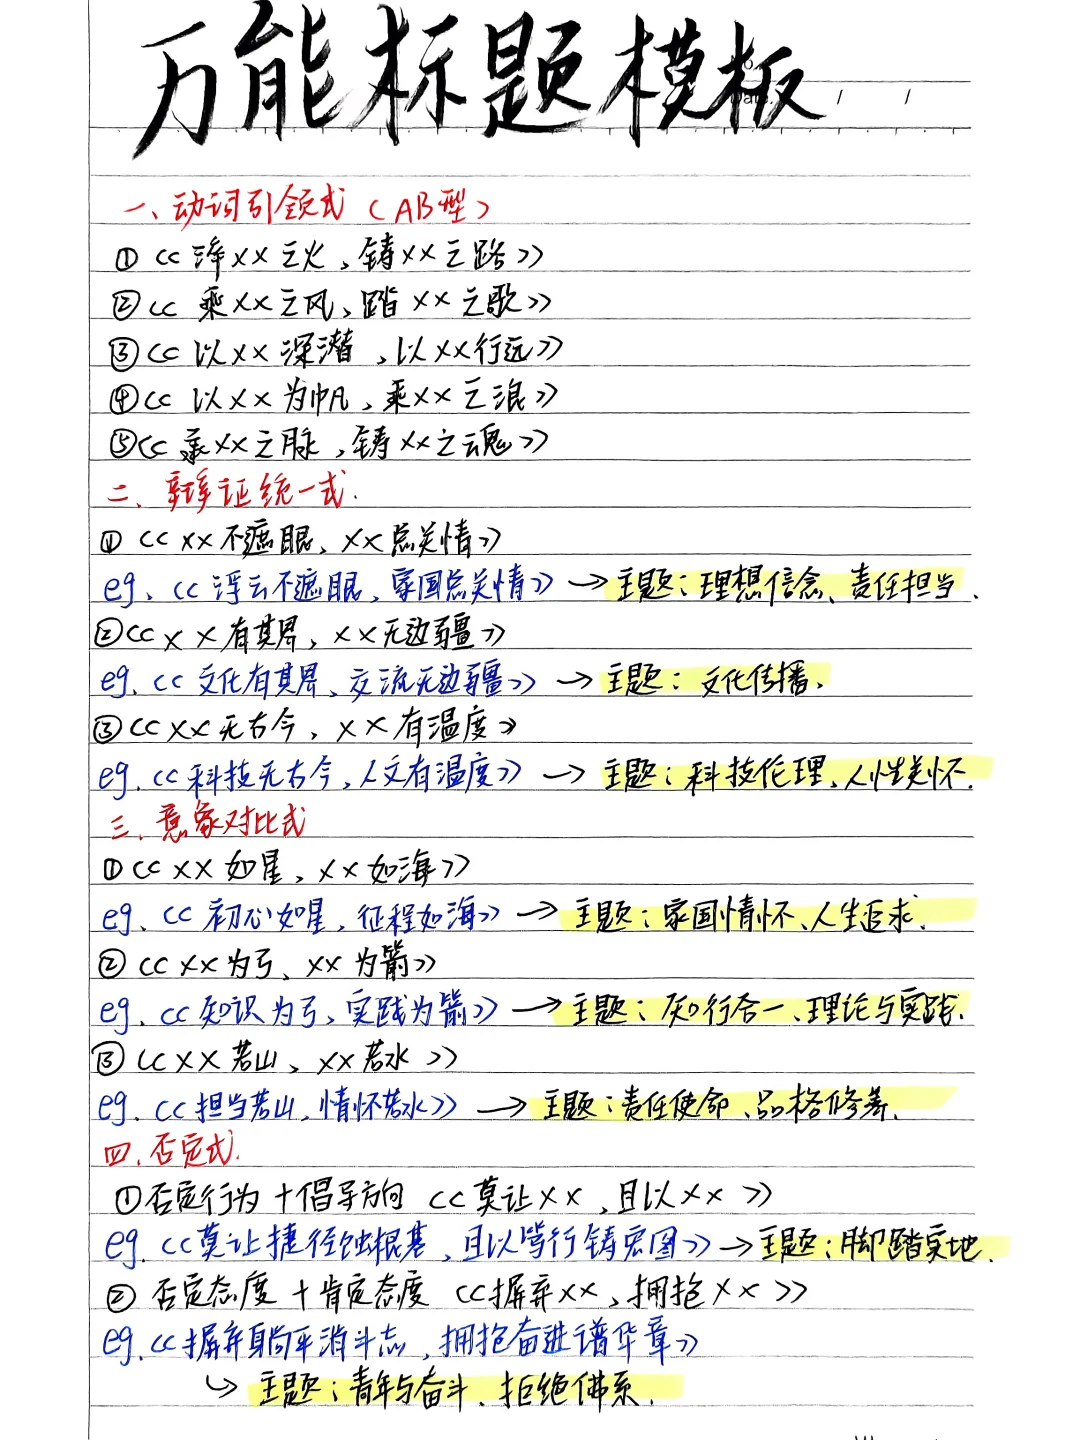 万能标题模板
一、动词引领式（AB型）
①《淬××之火，铸××之路》
②《乘××之风，踏××之歌》
③《以××深潜，以××行远》
④《以××为帆，乘××之浪》
⑤《承××之脉，铸××之魂》
二、辩证统一式.
①《××不遮眼，××总关情》
eg.《浮云不遮眼，家国总关情》→主题：理想信念、责任担当.
②《××有其界，××无边疆》
eg.《文化有其界，交流无边疆》→主题：文化传播.
③《××无古今，××有温度》
eg.《科技无古今，人文有温度》→主题：科技伦理，人性关怀.
三、意象对比式
①《××如星，××如海》
eg.《初心如星，征程如海》→主题：家国情怀、人生追求.
②《××为弓，××为箭》
eg.《知识为弓，实践为箭》→主题：知行合一、理论与实践.
③《××若山，××若水》
eg.《担当若山，情怀若水》→主题：责任使命、品格修养.
四.否定式.
①否定行为+倡导方向《莫让××，且以××》
eg.《莫让捷径蚀根基，且以笃行铸宏图》→主题：脚踏实地.
②否定态度+肯定态度《摒弃××，拥抱××》
eg.《摒弃躺平消斗志，拥抱奋进谱华章》
↳主题：青年与奋斗、拒绝佛系.